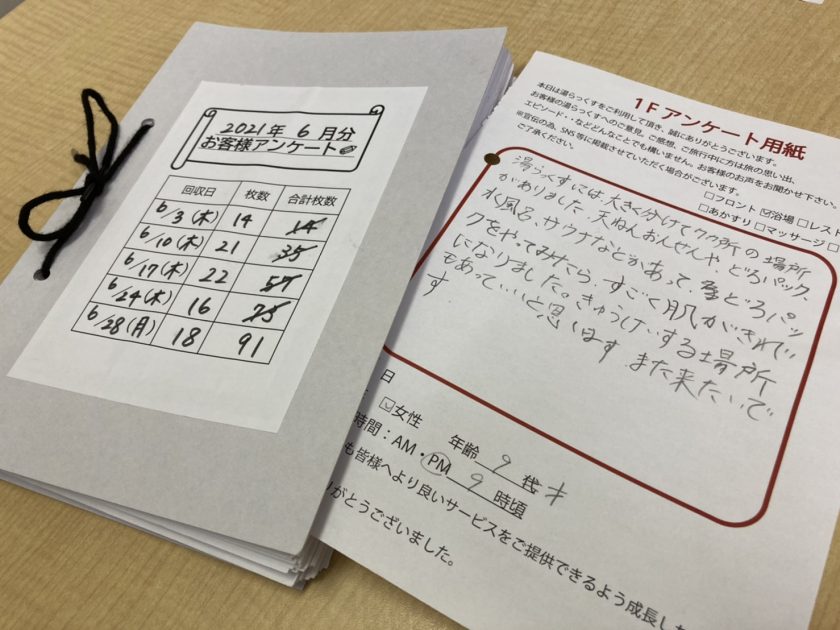 2021年 6 月分
お客様アンケート
回収日 枚数 合計枚数
6/3(木) 14 14
6/10(木) 21 35
6/17(木) 22 57
6/24(木) 16 75
6/28(月) 18 91
1Fアンケート用紙
本日は湯らっくすをご利用して頂き、誠にありがとうございます。
お客様の湯らっくすへのご意見、ご感想、ご旅行中に方は旅の思い出、
エピソード・・などどんなことでも構いません。お客様のお声をお聞かせ下さい。
※宣伝の為、SNS等に掲載させていただく場合がございます。
ご了承ください。
□フロント ☑浴場 □レスト
□あかすり □マッサージ □
湯らっくすには大きく分けて7カ所の場所
がありました。天ねんおんせんや、どろパック、
水風呂、サウナなどがあって、どろパッ
クをやってみたら、すごく肌がきれい
になりました。きゅうけいする場所
もあっていいと思います また来たいで
す.
日
☑女性 年齢 9 代才
時間:AM・PM 9 時頃
も皆様へより良いサービスをご提供できるよう成長した
りがとうございました。